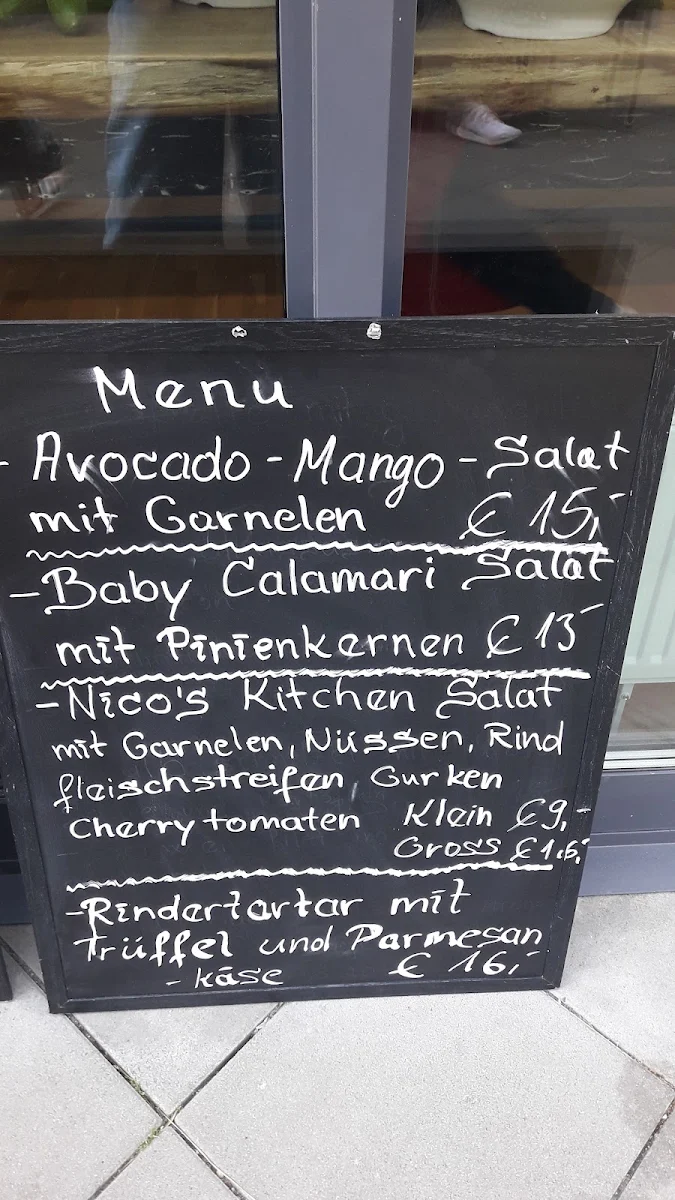 Menu
- Avocado - Mango - Salat
mit Garnelen € 15,-
- Baby Calamari Salat
mit Pinienkernen € 13-
- Nico's Kitchen Salat
mit Garnelen, Nüssen, Rind
fleischstreifen, Gurken
Cherrytomaten Klein € 9,-
Gross € 1.6,-
- Rindertartar mit
Trüffel und Parmesan
- käse € 16,-